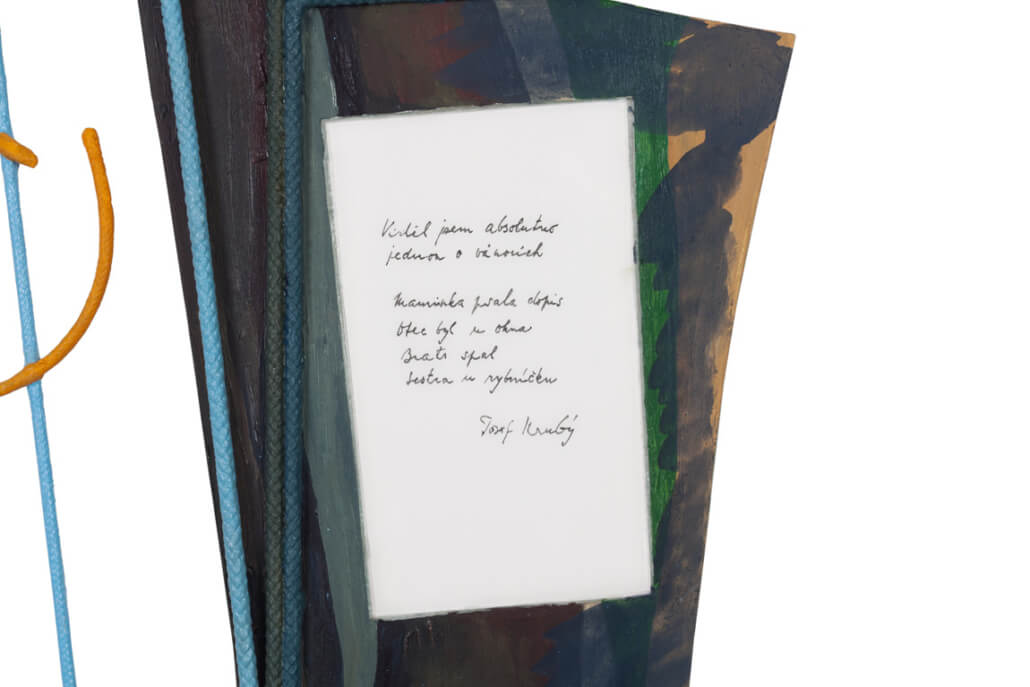 Viděl jsem absolutno
jednou o vánocích
Maminka psala dopis
Otec byl u okna
Bratr spal
Sestra u rybníčku
Josef Hrubý